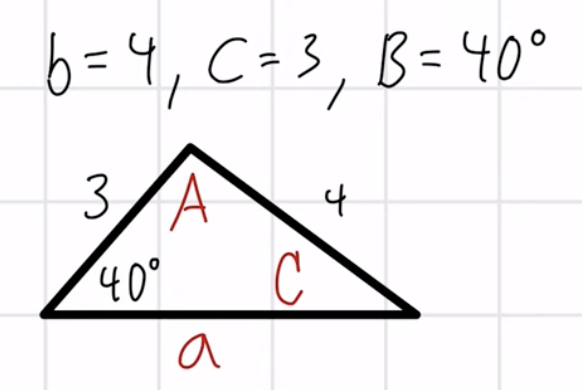 b=4, C=3, B=40°
3 A 4
40° C
a